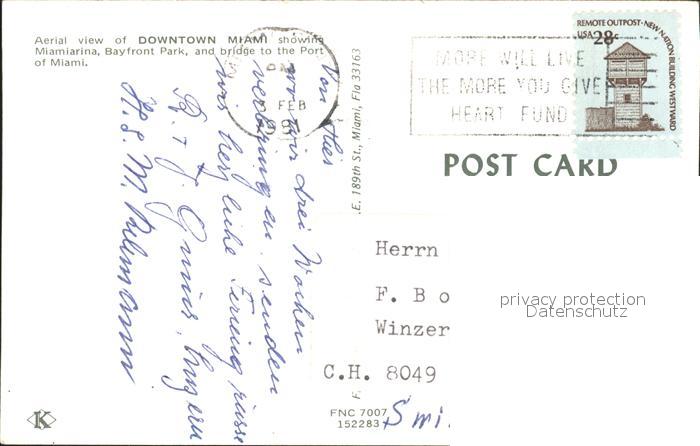 Aerial view of DOWNTOWN MIAMI showing
Miamiarina, Bayfront Park, and bridge to the Port
of Miami.
Von hier
wo wir drei Wochen
verbringen senden
wir herzliche Feriengrüsse
H. & M.
FEB
MORE WILL LIVE
THE MORE YOU GIVE
HEART FUND
REMOTE OUTPOST · NEW NATION BUILDING WESTWARD
USA 28c
POST CARD
E. 189th St., Miami, Fla 33163
Herrn
F. Bo
Winzer
C.H. 8049
privacy protection
Datenschutz
K
FNC 7007
152283